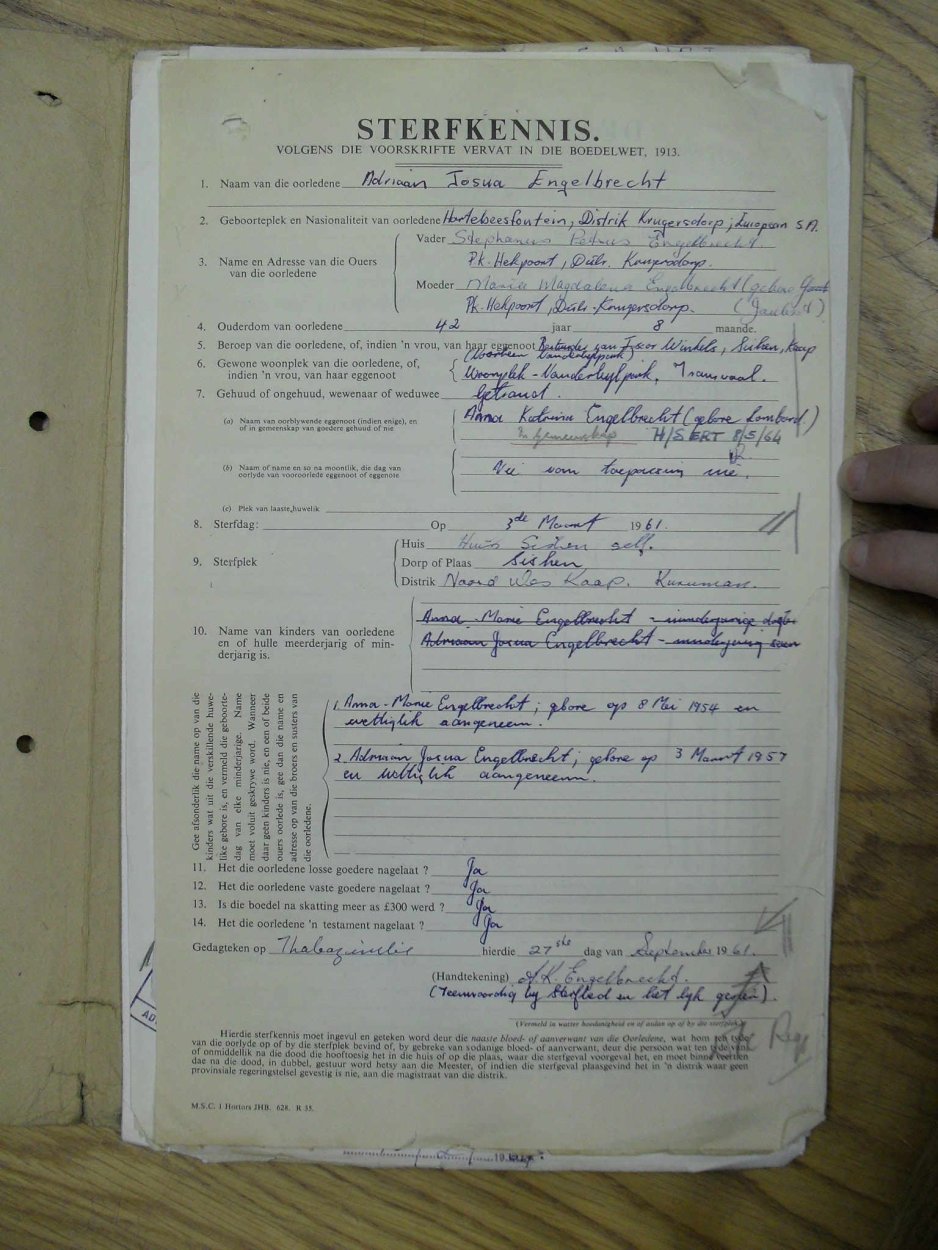 STERFKENNIS.
VOLGENS DIE VOORSKRIFTE VERVAT IN DIE BOEDELWET, 1913.
1. Naam van die oorledene Adriaan Josua Engelbrecht
2. Geboorteplek en Nasionaliteit van oorledene Hartebeesfontein, Distrik Krugersdorp; European S.A.
Vader Stephanus Petrus Engelbrecht.
3. Name en Adresse van die Ouers van die oorledene
Pk. Hekpoort, Distr. Krugersdorp.
Moeder Maria Magdalena Engelbrecht (gebore
Pk. Hekpoort, Distr. Krugersdorp. (Joubert)
4. Ouderdom van oorledene 42 jaar 8 maande.
5. Beroep van die oorledene, of, indien 'n vrou, van haar eggenoot Bestuurder van Iscor Winkels, Sishen, Kaap
(Voorheen Vanderbijlpark)
6. Gewone woonplek van die oorledene, of, indien 'n vrou, van haar eggenoot
Woonplek - Vanderbijlpark, Transvaal.
7. Gehuud of ongehuud, wewenaar of weduwee Getroud.
(a) Naam van oorblywende eggenoot (indien enige), en of in gemeenskap van goedere gehuud of nie
Anna Katrina Engelbrecht (gebore Lombard)
In Gemeenskap H/S ERT 8/5/64
(b) Naam of name en so na moontlik, die dag van oorlyde van vooroorlede eggenoot of eggenote
Nie van toepassing nie.
(c) Plek van laaste huwelik
8. Sterfdag: Op 3de Maart 1961.
Huis Huis Sishen self.
9. Sterfplek
Dorp of Plaas Sishen
Distrik Noord Wes Kaap. Kuruman.
Anna-Marie Engelbrecht - minderjarige dogter
10. Name van kinders van oorledene en of hulle meerderjarig of minderjarig is.
Adriaan Josua Engelbrecht - minderjarig seun
Gee afsonderlik die name op van die
kinders wat uit die verskillende huwe-
like gebore is, en vermeld die geboorte-
dag van elke minderjarige. Name
moet voluit geskrywe word. Wanneer
daar geen kinders is nie, en een of beide
ouers oorlede is, gee dan die name en
adresse op van die broers en susters van
die oorledene.
1. Anna-Marie Engelbrecht; gebore op 8 Mei 1954 en
wettiglik aangeneem.
2. Adriaan Josua Engelbrecht; gebore op 3 Maart 1957
en wettiglik aangeneem.
11. Het die oorledene losse goedere nagelaat ? Ja
12. Het die oorledene vaste goedere nagelaat ? Ja
13. Is die boedel na skatting meer as £300 werd ? Ja
14. Het die oorledene 'n testament nagelaat ? Ja
Gedagteken op Thabazimbi hierdie 27ste dag van September 1961.
(Handtekening) A.K. Engelbrecht.
(Teenwoordig by sterfbed en het lyk gesien).
(Vermeld in watter hoedanigheid en of aldan op of by die sterfplek.)
Hierdie sterfkennis moet ingevul en geteken word deur die naaste bloed- of aanverwant van die Oorledene, wat hom ten tyde
van die oorlyde op of by die sterfplek bevind of, by gebreke van sodanige bloed- of aanverwant, deur die persoon wat ten tyde van
of onmiddellik na die dood die hooftoesig het in die huis of op die plaas, waar die sterfgeval voorgeval het, en moet binne veertien
dae na die dood, in dubbel, gestuur word hetsy aan die Meester, of indien die sterfgeval plaasgevind het in 'n distrik waar geen
provinsiale regeringstelsel gevestig is nie, aan die magistraat van die distrik.
M.S.C. 1 Hortors JHB. 628. R 35.